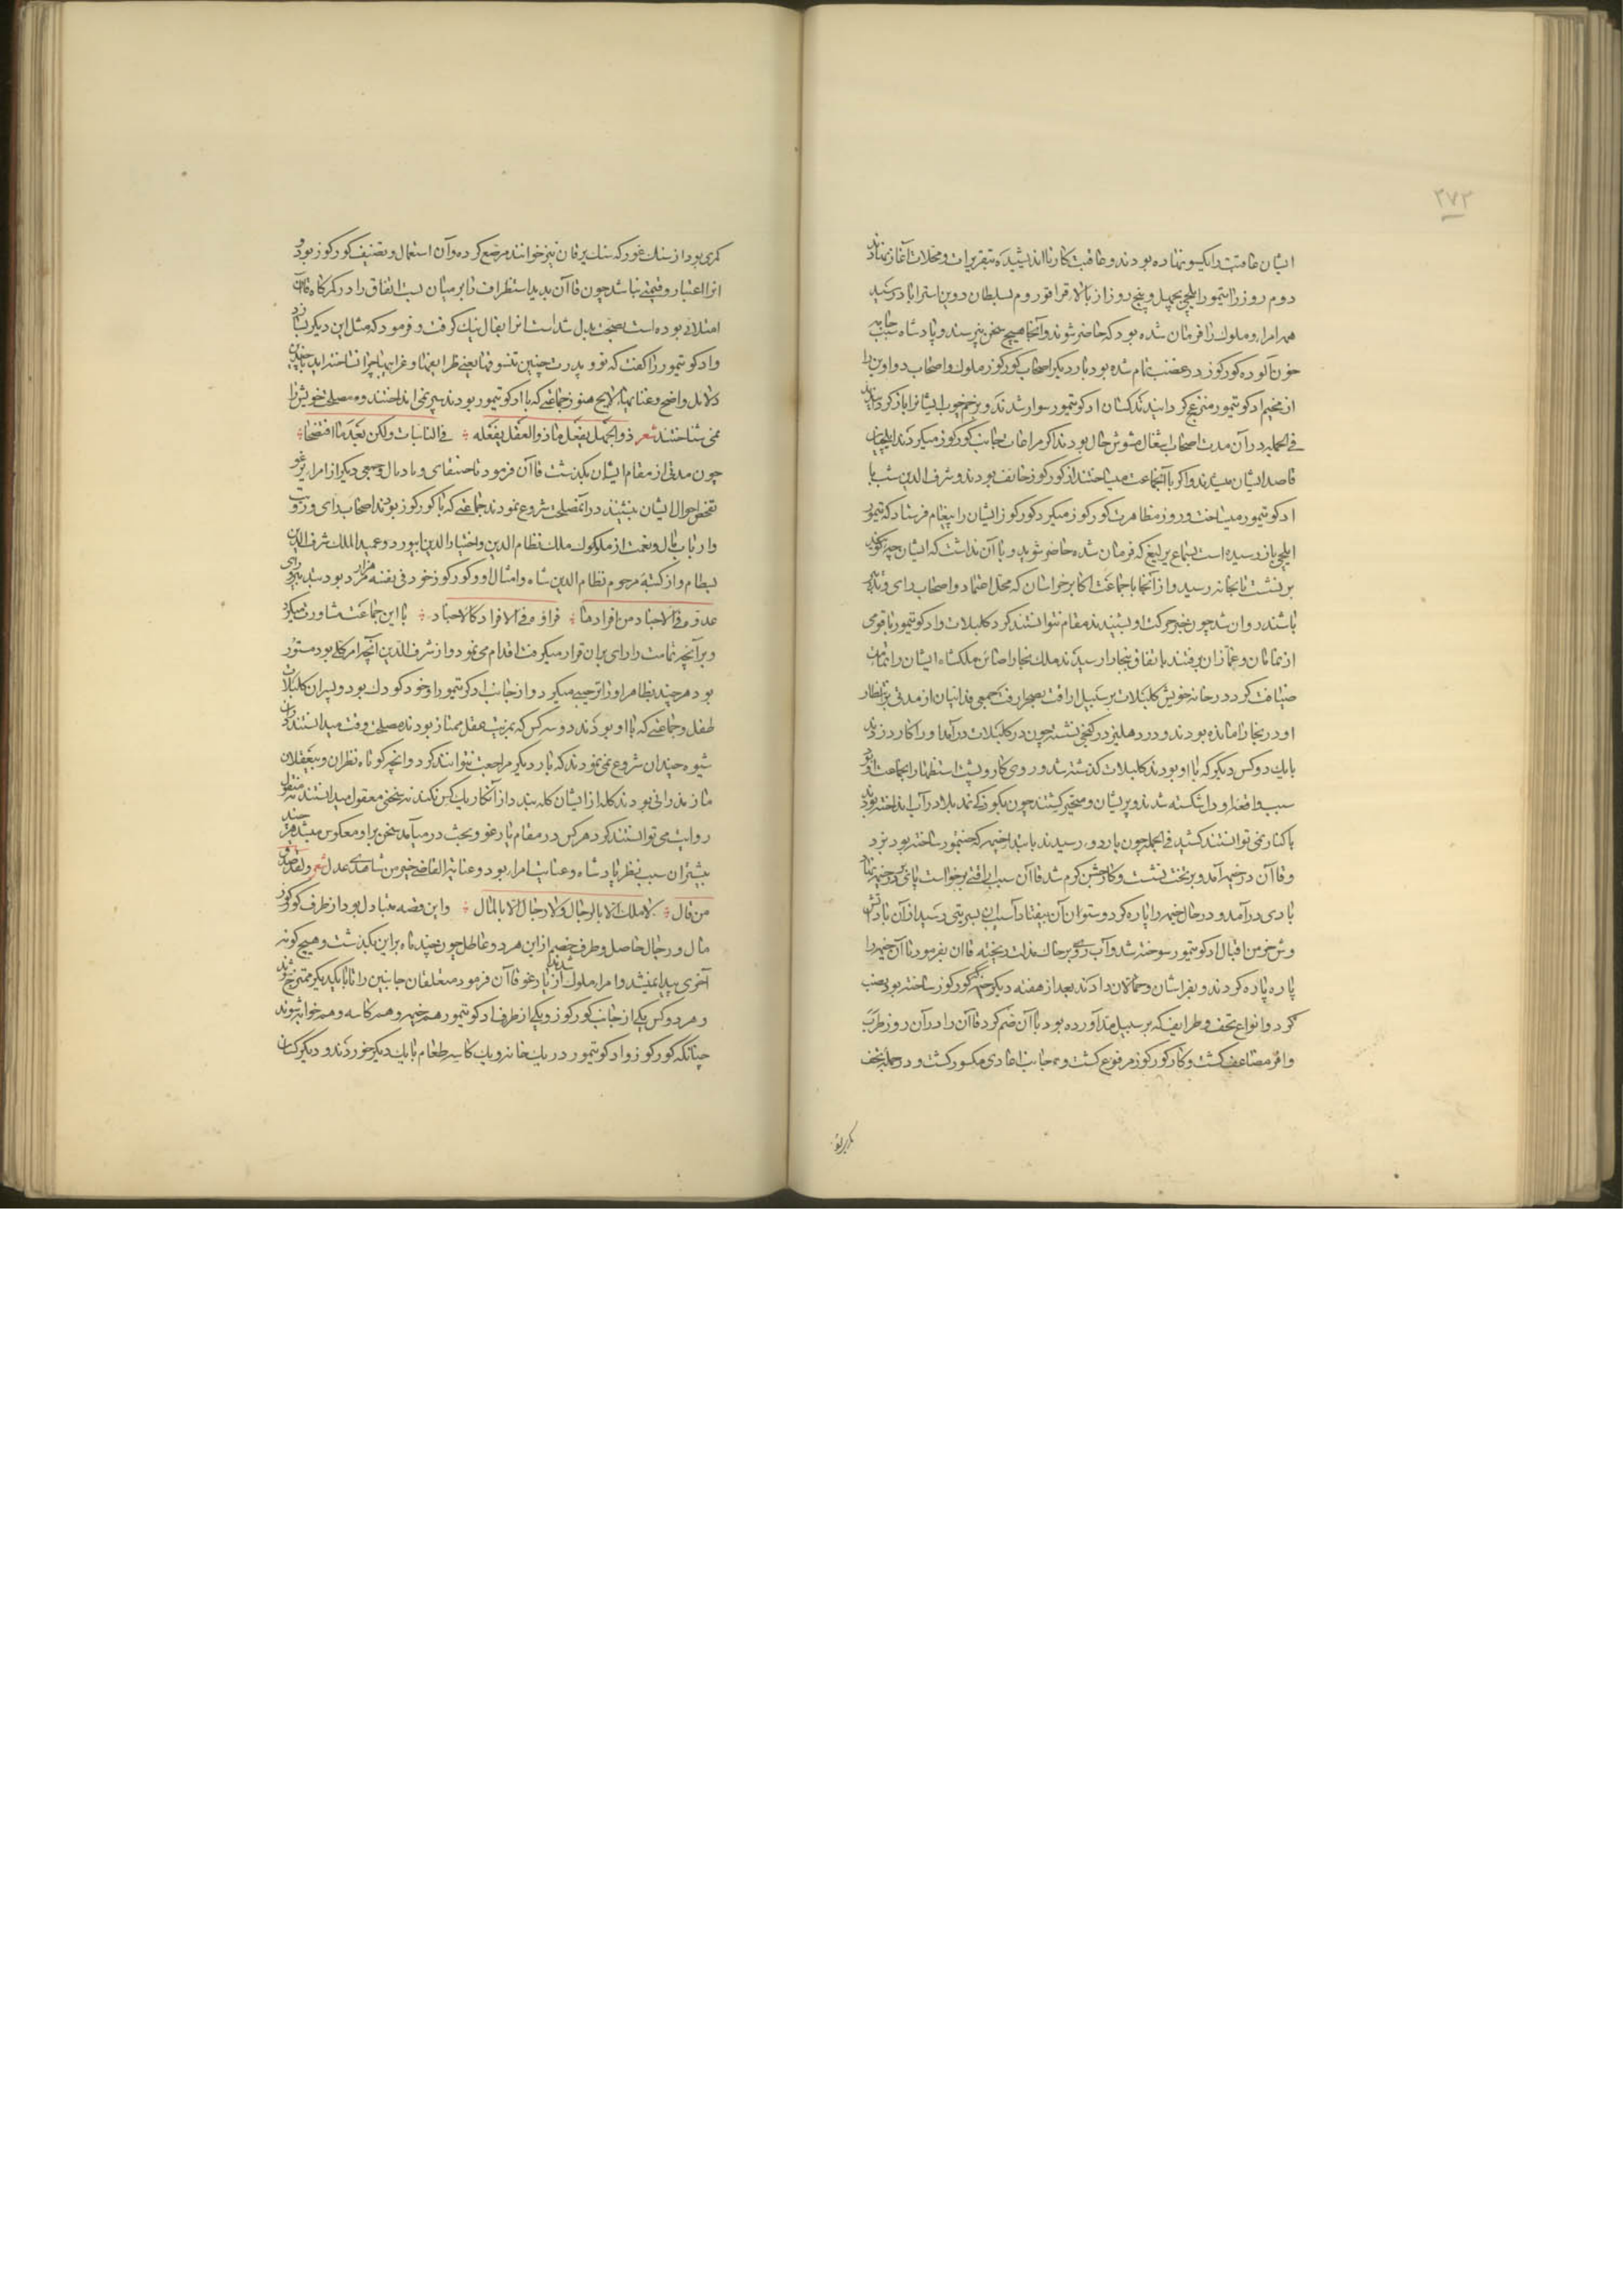 ۲۷۳
ایشان عاقبت را یکسو نهاده بودند و عاقبت کارنا اندیشیده تقریرات و مخلات آغاز نهادند
دوم روز را تیمور ایلچی بچهل و پنج روز از بالا قراقوروم بسلطان دوین استراباد رسید
همه امرا و ملوک را فرمان شده بود که حاضر شوند و آنجا هیچ سخن نپرسند و پادشاه سبب جامه
خون آلوده کورکوز در غضب تمام شده بود بار دیگر اصحاب کورکوز ملوک و اصحاب دواوین را
از مخیم ادکو تیمور منزعج کردانیدند کسان ادکو تیمور سوار شدند و بزخم چوب ایشانرا باز کردانیدند
فی الجمله در آن مدت اصحاب اشغال مشوش حال بودند اکر مراعات جانب کورکوز میکردند ایلچیان
قاصد ایشان میشدند و اکر با آنجماعت میساختند از کورکوز خائف بودند و شرف الدین شب با
ادکو تیمور میساخت و روز مظاهرت کورکوز میکرد کورکوز ایشان را پیغام فرستاد که تیمور
ایلچی باز رسیده است بسماع یرلیغ که فرمان شده حاضر شوید و با آن نداشت که ایشان چه کویند
برنشست تا بخانه رسید و از آنجا با جماعت اکابر خراسان که محل اعتماد و اصحاب رای و تدبیر
باشند روان شد چون خبر حرکت او بشنیدند مقام نتوانستند کرد کلبلات و ادکو تیمور با قومی
از نمامان و غمازان برفتند باتفاق ببخارا رسیدند ملک بخارا صاین ملکشاه ایشان را تمامت
ضیافت کرد در خانه خویش کلبلات بر سبیل اراقت بصحرا رفت جمعی فدائیان از مدتی بانتظار
او در بخارا مانده بودند و در دهلیز در کنجی نشسته چون در کلبلات درآمد او را کارد زدند
با یک دو کس دیگر که با او بودند کلبلات کذشته شد و روی کار و پشت استظهار انجماعت او بود
سبب واقعه او دل شکسته شدند و پریشان و متحیر کشتند چون بکوزکه بند بلا در آب انداخته بودند
با کنار نمی توانستند کشید فی الجمله چون باردو رسیدند بابتدا خیمه که جنتمور ساخته بود بزد
و قاآن در خیمه آمد و بر تخت نشست و کار جشن کرم شد قاآن سبب اراقتی برخاست پای در خیمه نهاد
بادی درآمد و در حال خیمه را پاره کرد و ستوان آن بیفتاد آسیبی بسریتی رسید از آن باد آتش
وش خرمن اقبال ادکو تیمور سوخته شد و آب روی بر خاک مذلت ریخته قاآن بفرمود تا آن خیمه را
پاره پاره کردند و بفراشان و حمالان دادند بعد از هفته دیگر خیمه که کورکوز ساخته بود بنصب
کرد و انواع تحف و طرایف که بر سبیل هدیه آورده بود با آن ضم کرد قاآن را در آن روز طرب
وافر مضاعف کشت و کار کورکوز مرفوع کشت و محانب اعادی مکسور کشت و در جمله تحف
کمری بود از سنک غور که سنک یرقان نیز خوانند مرصع کرده و آن استعمال و تصنیف کورکوز بود و
آنرا اعتبار و قیمتی نباشد چون قاآن بدید استظراف را بر میان بست اتفاق را در کمرکاه قاآن
امتلائی بوده است بصحت بدل شد آنرا بفال نیک کرفت و فرمود که مثل این دیگر بسازد
و ادکو تیمور را کفت که تو و پدرت چنین تنسوقها یعنی ظرایفها و غرایبها چرا نساختهاید با چندین
دلایل واضح و عنایتها لایح هنوز جماعتی که با ادکو تیمور بودند سپر نمی انداختند و مصلحت خویش را
نمی شناختند شعر ذو الجهل یفعل ما ذو العقل یفعله فی النائبات ولکن بعد ما افتضحا
چون مدتی از مقام ایشان بکذشت قاآن فرمود تا جینقای و باداال و جمعی دیگر از امراء یرغو
تفحص احوال ایشان بنشینند در آن مصلحت شروع نمودند جماعتی که با کورکوز بودند اصحاب رای و رزت
و ارباب مال و نعمت از ملوک ملک نظام الدین و اختیار الدین ابیورد و عمید الملک شرف الدین
بسطام و از کتبه مرحوم نظام الدین شاه و امثال او و کورکوز خود فی نفسه هزار مرد بود بتدبیر و رای
عدوه فی الاحاد من افرادها فراوه فی الافراد کالاحاد با این جماعت مشاورت میکرد
و بر آنچه تمامت را رای بر آن قرار میکرفت اقدام می نمود و از شرف الدین آنچه امر کلی بود مستور
بود هر چند بظاهر او را ترحیبی میکرد و از جانب ادکو تیمور او خود کودک بود و پسران کلبلات
طفل و جماعتی که با او بودند دو سه کس که بمزیت عقل ممتاز بودند مصلحت وقت میدانستند در آن
شیوه چندان شروع نمی نمودند که بار دیگر مراجعت نتوانند کرد و آنچه کوتاه نظران و بیعقلان
مازندرانی بودند کله از ایشان کله بند دار آن کار یک کس نکند نه سخنی معقول میدانستند نه منقول
روایت می توانستند کرد هر کس در مقام یارغو و بحث درمیآمد سخن برو معکوس میشد هر چند
بیشتر آن سبب نظر پادشاه و عنایت امرا بود و عنایة القاضی خیر من شاهدی عدل شعر ولقد صدق
من قال لا ملک الا بالرجال ولا رجال الا بالمال و این قضه متبادل بود از طرف کورکوز
مال و رجال حاصل و طرف خصم از این هر دو عاطل چون چند ماه بر این بکذشت و هیچ کونه
آخری پیدا نمیشد و امراء ملوک از یارغو قاآن فرمود متعلقان جانبین را تا با یکدیگر ممتزج شوند
و هر دو کس یکی از جانب کورکوز و یکی از طرف ادکو تیمور هم خیمه و هم کاسه و هم خوابه شوند
چنانکه کورکوز و ادکو تیمور در یک خانه و یک کاسه طعام با یکدیگر خوردند و دیگر کسان